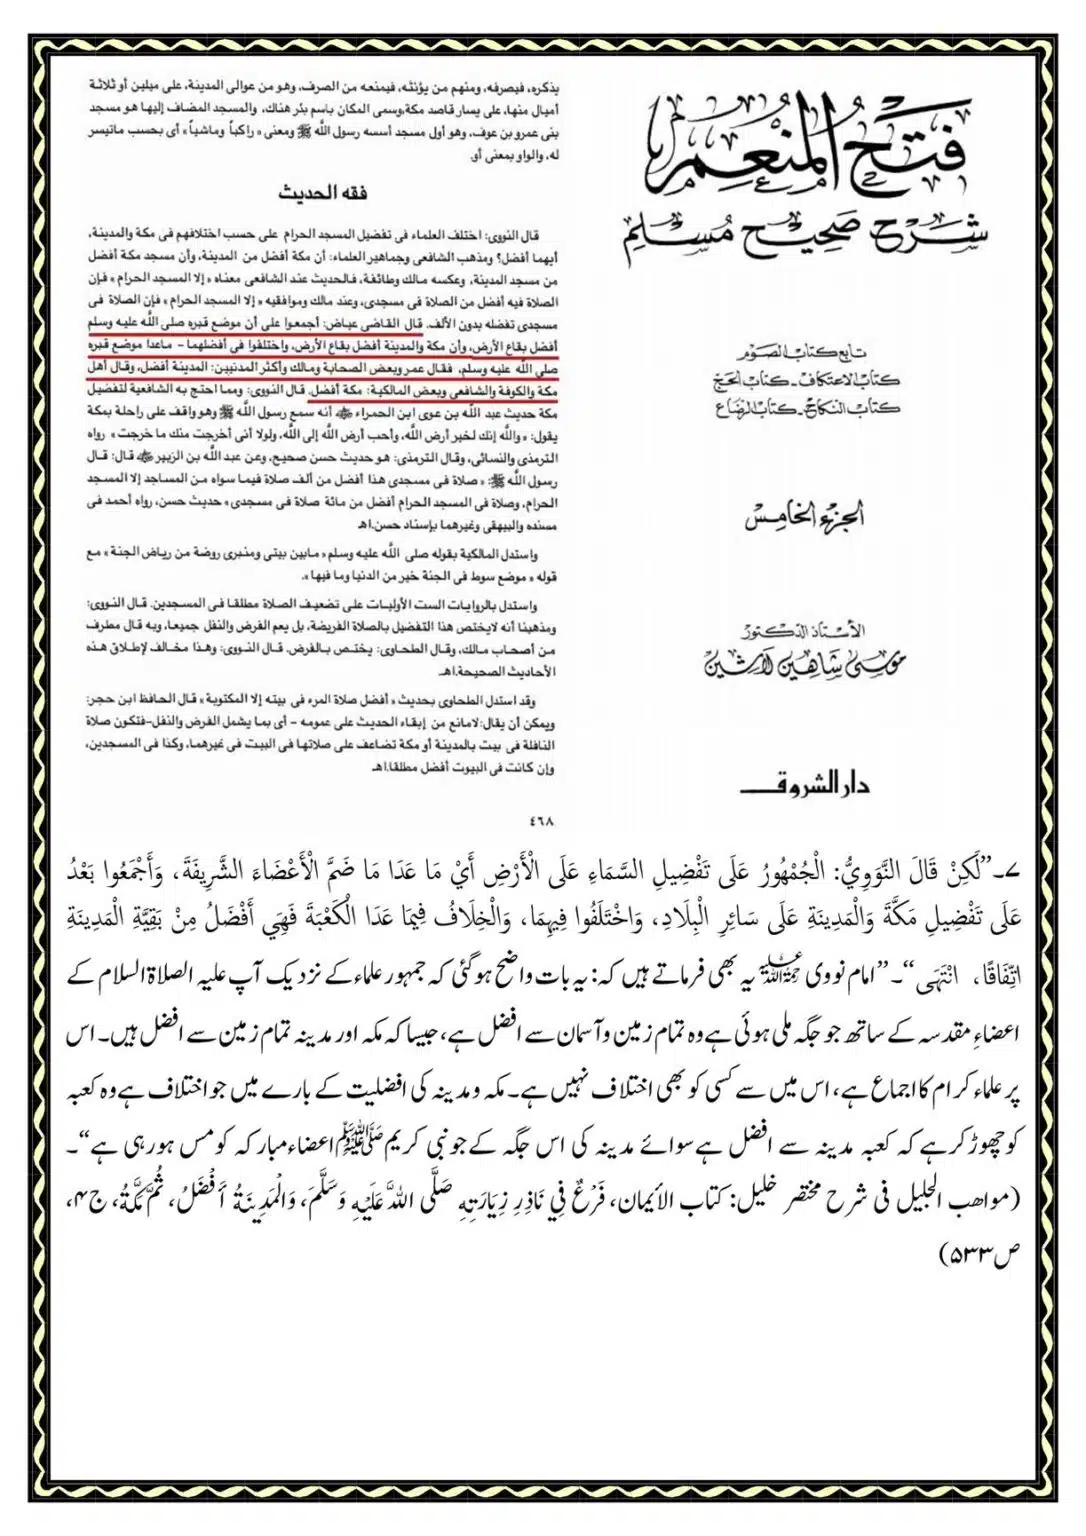 فتح المنعم
شرح صحيح مسلم
تابع كتاب الصوم
كتاب الاعتكاف - كتاب الحج
كتاب النكاح - كتاب الرضاع
الجزء الخامس
الأستاذ الدكتور
موسى شاهين لاشين
دار الشروق
يذكره، فيصرفه، ومنهم من يؤنثه، فيمنعه من الصرف، وهو من عوالى المدينة، على ميلين أو ثلاثة
أميال منها، على يسار قاصد مكة، وسمى المكان باسم بئر هناك، والمسجد المضاف إليها هو مسجد
بنى عمرو بن عوف، وهو أول مسجد أسسه رسول اللَّه ﷺ ومعنى « راكباً وماشياً » أى بحسب ماتيسر
له، والواو بمعنى أو.
فقه الحديث
قال النووى: اختلف العلماء فى تفضيل المسجد الحرام على حسب اختلافهم فى مكة والمدينة،
أيهما أفضل؟ ومذهب الشافعى وجماهير العلماء: أن مكة أفضل من المدينة، وأن مسجد مكة أفضل
من مسجد المدينة، وعكسه مالك وطائفة، فالحديث عند الشافعى معناه « إلا المسجد الحرام » فإن
الصلاة فيه أفضل من الصلاة فى مسجدى، وعند مالك وموافقيه « إلا المسجد الحرام » فإن الصلاة فى
مسجدى تفضله بدون الألف. قال القاضى عياض: أجمعوا على أن موضع قبره صلى اللَّه عليه وسلم
أفضل بقاع الأرض، وأن مكة والمدينة أفضل بقاع الأرض، واختلفوا فى أفضلهما - ماعدا موضع قبره
صلى اللَّه عليه وسلم، فقال عمر وبعض الصحابة ومالك وأكثر المدنيين: المدينة أفضل، وقال أهل
مكة والكوفة والشافعى وبعض المالكية: مكة أفضل. قال النووى: ومما احتج به الشافعية لتفضيل
مكة حديث عبد اللَّه بن عوى ابن الحمراء ﷺ أنه سمع رسول اللَّه ﷺ وهو واقف على راحلة بمكة
يقول: « واللَّه إنك لخير أرض اللَّه، وأحب أرض اللَّه إلى اللَّه، ولولا أنى أخرجت منك ما خرجت » رواه
الترمذى والنسائى، وقال الترمذى: هو حديث حسن صحيح، وعن عبد اللَّه بن الزبير قال: قال
رسول اللَّه ﷺ: « صلاة فى مسجدى هذا أفضل من ألف صلاة فيما سواه من المساجد إلا المسجد
الحرام، وصلاة فى المسجد الحرام أفضل من مائة صلاة فى مسجدى » حديث حسن، رواه أحمد فى
مسنده والبيهقى وغيرهما بإسناد حسن.اهـ
واستدل المالكية بقوله صلى اللَّه عليه وسلم « مابين بيتى ومنبرى روضة من رياض الجنة » مع
قوله « موضع سوط فى الجنة خير من الدنيا وما فيها ».
واستدل بالروايات الست الأوليات على تضعيف الصلاة مطلقا فى المسجدين. قال النووى:
ومذهبنا أنه لايختص هذا التفضيل بالصلاة الفريضة، بل يعم الفرض والنفل جميعا، وبه قال مطرف
من أصحاب مالك، وقال الطحاوى: يختص بالفرض. قال النووى: وهذا مخالف لإطلاق هذه
الأحاديث الصحيحة.اهـ
وقد استدل الطحاوى بحديث « أفضل صلاة المرء فى بيته إلا المكتوبة » قال الحافظ ابن حجر:
ويمكن أن يقال: لامانع من إبقاء الحديث على عمومه - أى بما يشمل الفرض والنفل-فتكون صلاة
النافلة فى بيت بالمدينة أو مكة تضاعف على صلاتها فى البيت فى غيرهما، وكذا فى المسجدين،
وإن كانت فى البيوت أفضل مطلقا.اهـ
٤٦٨
۷۔”لَكِنْ قَالَ النَّوَوِيُّ: الْجُمْهُورُ عَلَى تَفْضِيلِ السَّمَاءِ عَلَى الْأَرْضِ أَيْ مَا عَدَا مَا ضَمَّ الْأَعْضَاءَ الشَّرِيفَةَ، وَأَجْمَعُوا بَعْدُ
عَلَى تَفْضِيلِ مَكَّةَ وَالْمَدِينَةِ عَلَى سَائِرِ الْبِلَادِ، وَاخْتَلَفُوا فِيهِمَا، وَالْخِلَافُ فِيمَا عَدَا الْكَعْبَةَ فَهِيَ أَفْضَلُ مِنْ بَقِيَّةِ الْمَدِينَةِ
اتِّفَاقًا، انْتَهَى“۔”امام نووی رحمۃ اللہ علیہ یہ بھی فرماتے ہیں کہ: یہ بات واضح ہوگئی کہ جمہور علماء کے نزدیک آپ علیہ الصلاۃ السلام کے
اعضاءِ مقدسہ کے ساتھ جو جگہ ملی ہوئی ہے وہ تمام زمین و آسمان سے افضل ہے، جیسا کہ مکہ اور مدینہ تمام زمین سے افضل ہیں۔ اس
پر علماء کرام کا اجماع ہے، اس میں سے کسی کو بھی اختلاف نہیں ہے۔ مکہ و مدینہ کی افضلیت کے بارے میں جو اختلاف ہے وہ کعبہ
کو چھوڑ کر ہے کہ کعبہ مدینہ سے افضل ہے سوائے مدینہ کی اس جگہ کے جو نبی کریم ﷺ اعضاء مبارکہ کو مس ہو رہی ہے“۔
(مواهب الجليل فی شرح مختصر خليل: كتاب الأيمان، فَرْعٌ فِي نَاذِرِ زِيَارَتِهِ صَلَّى اللَّهُ عَلَيْهِ وَسَلَّمَ، وَالْمَدِينَةُ أَفْضَلُ، ثُمَّ مَكَّةُ، ج۴،
ص۵۳۳)